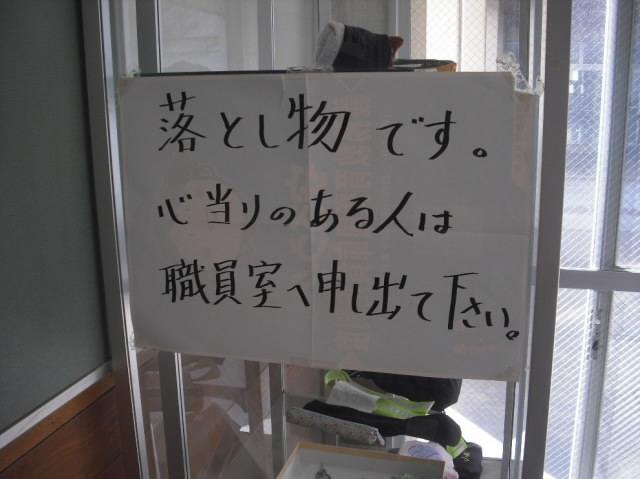 落とし物です。
心当りのある人は
職員室へ申し出て下さい。